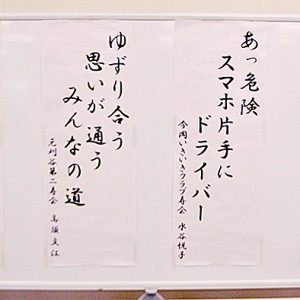 あっ危険
スマホ片手に
ドライバー
今岡いきいきクラブ寿会 水谷悦子
ゆずり合う
思いが通う
みんなの道
元刈谷第二寿会 高須文江